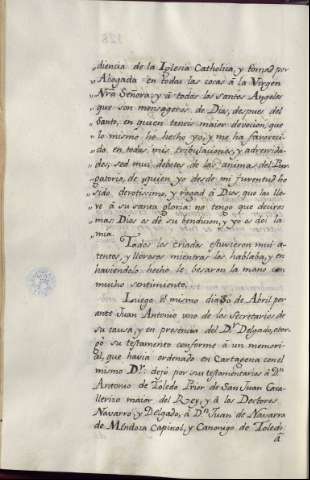 „diencia de la Iglesia Catholica, y tomad por
„Abogada en todas las cosas á la Virgen
„Nrã Señora, y á todos los santos Angeles
„que son mensageros de Dios, despues del
„Santo, en quien teneis maior devocion, que
„lo mismo he hecho yo, y me ha favoreci-
„do en todas mis tribulaciones, y adversida-
„des; sed mui debotos de las animas del Pur-
„gatorio, de quien yo desde mi juventud he
„sido devotissimo, y rogad á Dios que las lle-
„ve á su santa gloria: no tengo que deciros
„mas Dios os dé su bendicion, y yo os doi la
„mia.
Todos los criados estuvieron mui a-
tentos, y llorosos mientras les hablaba, y en
haviendolo hecho le besaron la mano con
mucho sentimiento.
Luego el mismo dia de Abril por
ante Juan Antonio uno de los Secretarios de
su causa, y en presencia del Dr. Delgado, otor-
gó su testamento conforme á un memori-
al, que havia ordenado en Cartagena con el
mismo Dr. dejó por sus testamentarios á Dn.
Antonio de Toledo Prior de San Juan Cava-
llerizo maior del Rey, y á los Doctores
Navarro, y Delgado, á Dn. Juan de Navarra
de Mendoza Capiscol, y Canonigo de Toledo
á